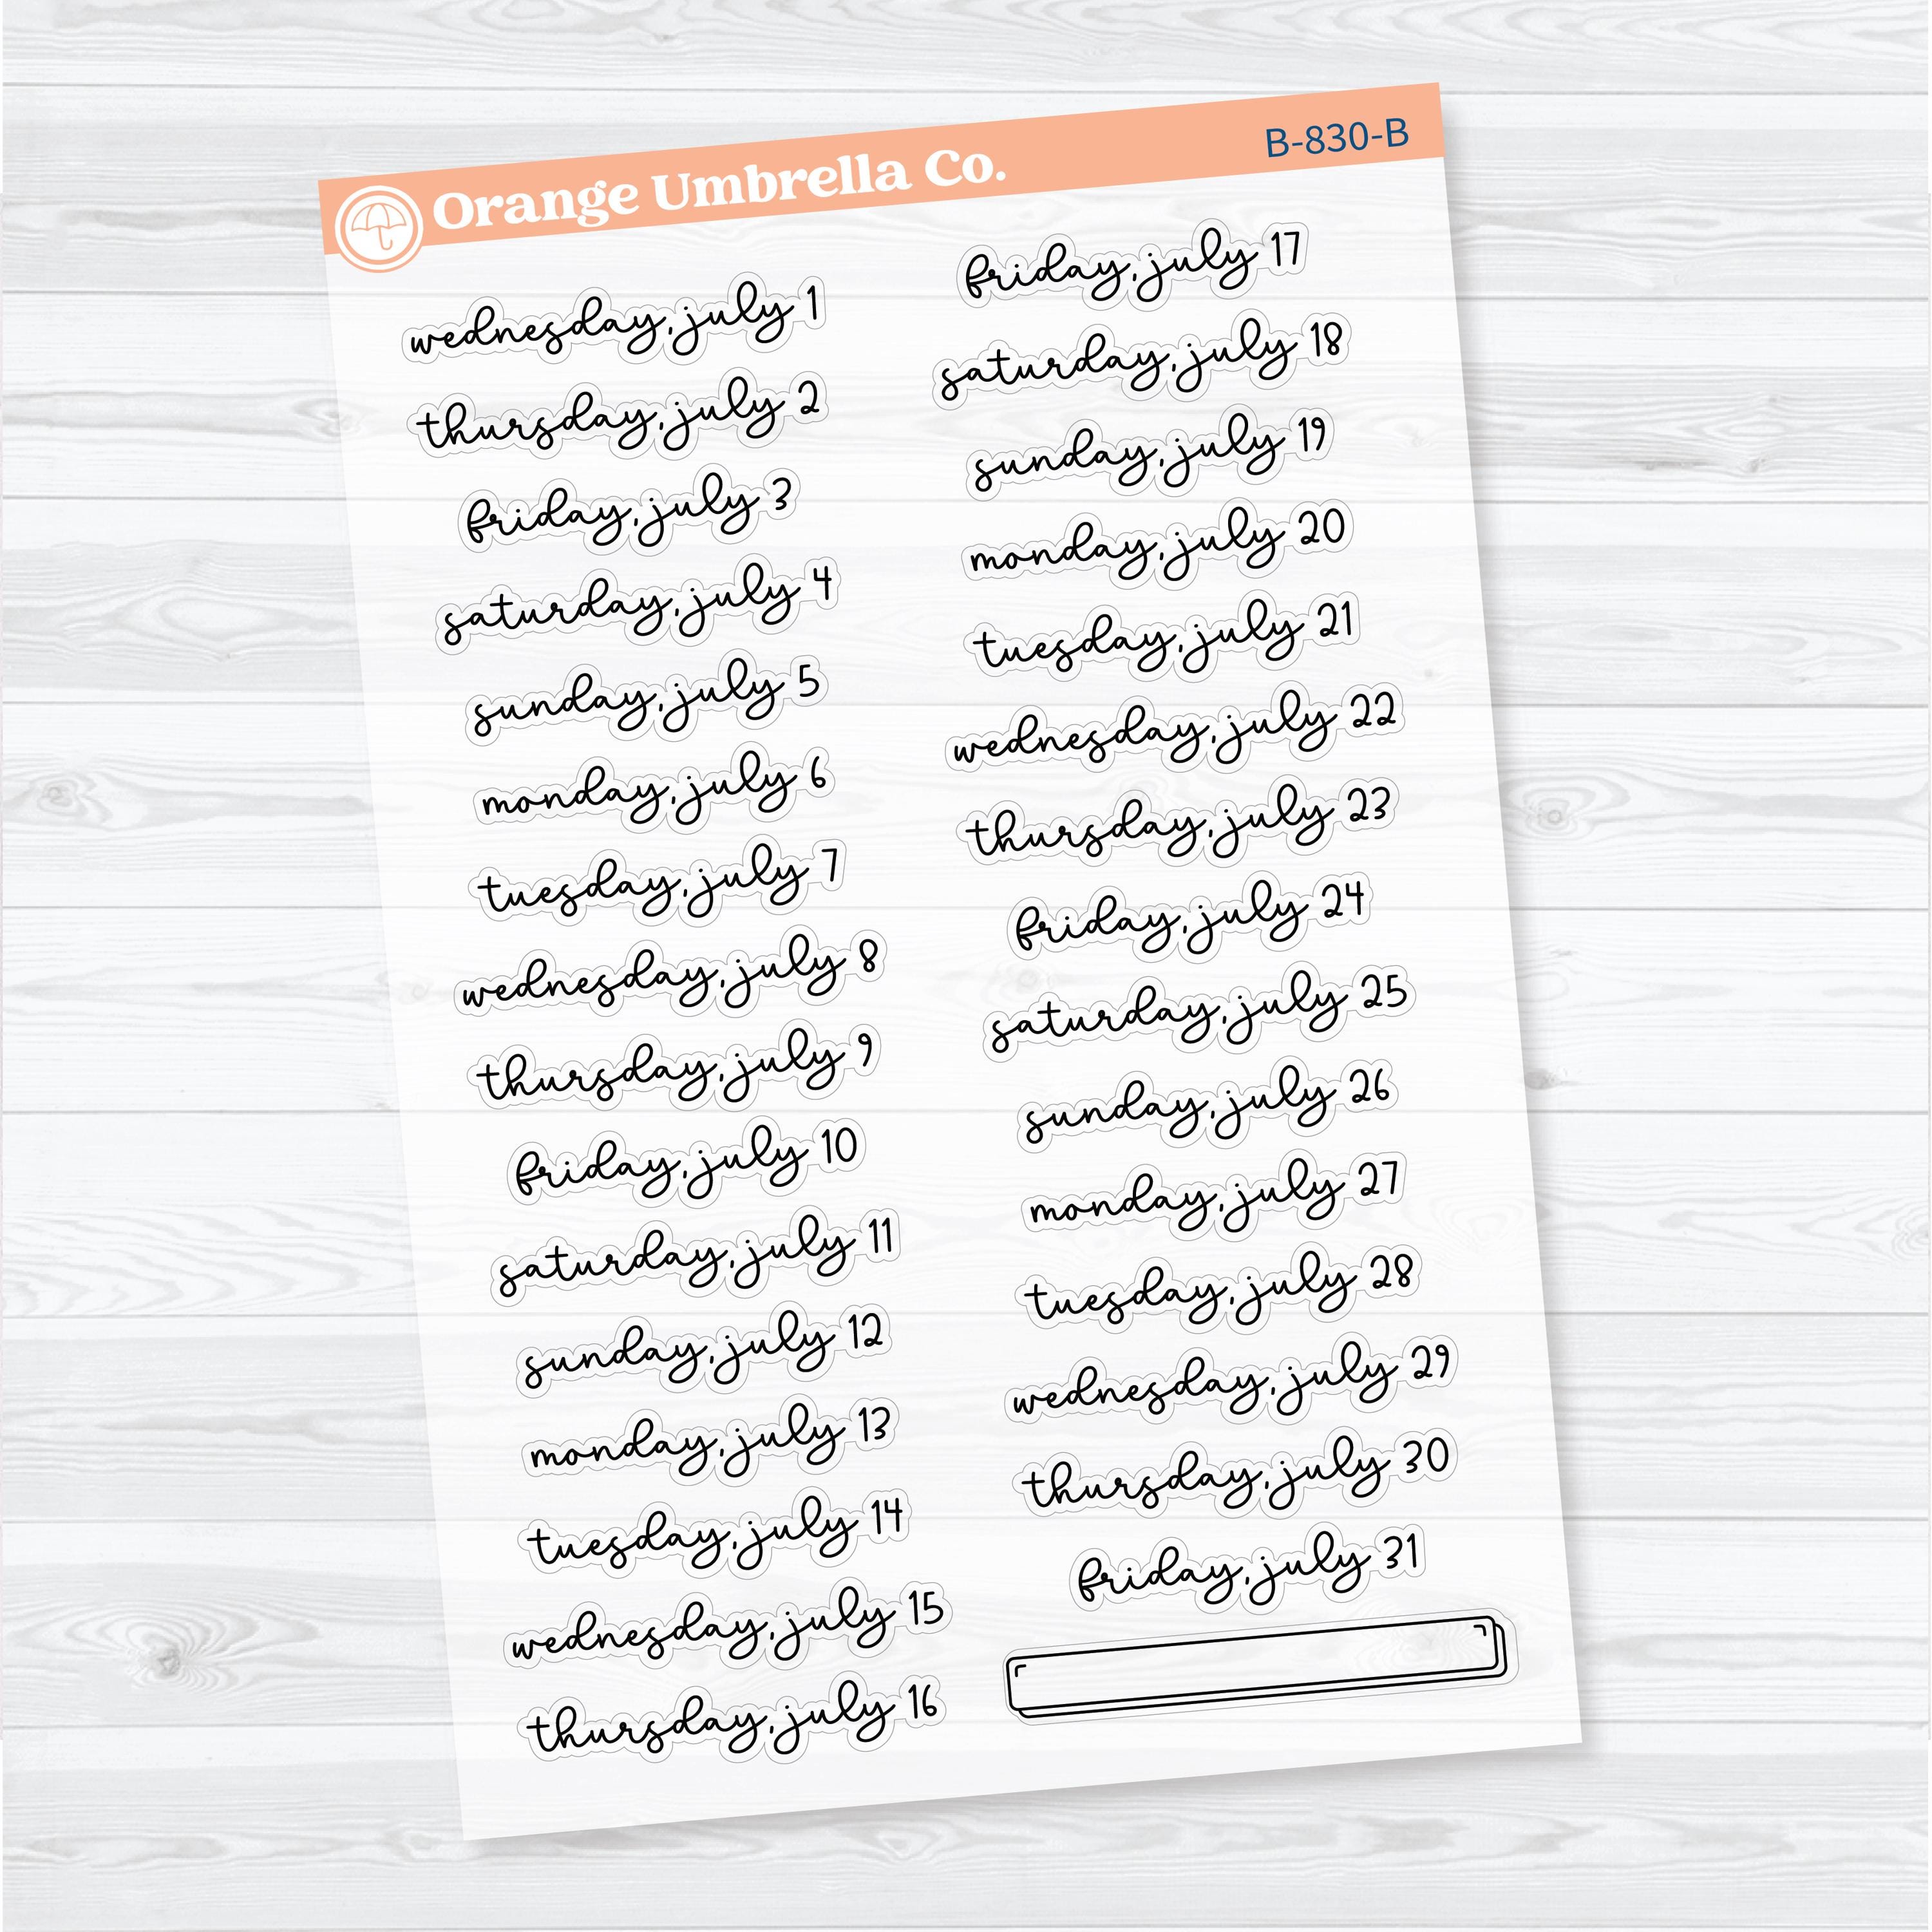 Orange Umbrella Co.
B-830-B
wednesday, july 1
thursday, july 2
friday, july 3
saturday, july 4
sunday, july 5
monday, july 6
tuesday, july 7
wednesday, july 8
thursday, july 9
friday, july 10
saturday, july 11
sunday, july 12
monday, july 13
tuesday, july 14
wednesday, july 15
thursday, july 16
friday, july 17
saturday, july 18
sunday, july 19
monday, july 20
tuesday, july 21
wednesday, july 22
thursday, july 23
friday, july 24
saturday, july 25
sunday, july 26
monday, july 27
tuesday, july 28
wednesday, july 29
thursday, july 30
friday, july 31